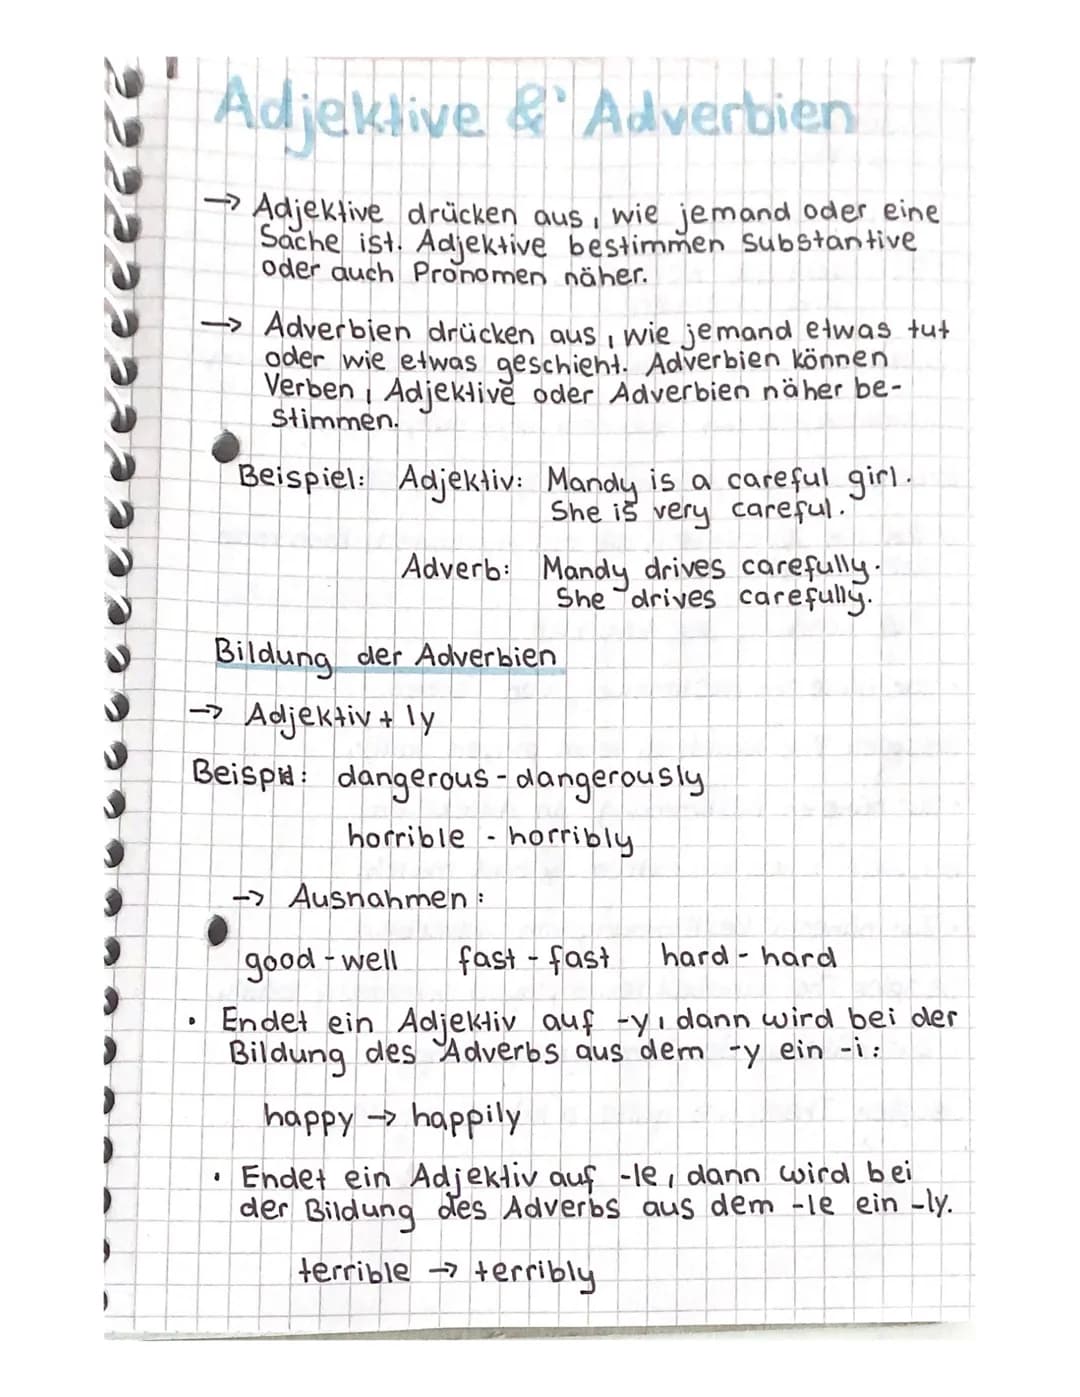 Adjektive & Adverbien
→ Adjektive drücken aus, wie jemand oder eine
Sache ist. Adjektive bestimmen Substantive
oder auch Pronomen näher.
→ Adverbien drücken aus, wie jemand etwas tut
oder wie etwas geschieht. Adverbien können
Verben, Adjektive oder Adverbien näher be-
stimmen.
Beispiel: Adjektiv: Mandy is a careful girl.
She is very careful.
Adverb: Mandy drives carefully.
She drives carefully.
Bildung der Adverbien
→ Adjektiv + ly
Beispiel: dangerous - dangerously
horrible - horribly
→ Ausnahmen:
good - well fast - fast hard - hard
• Endet ein Adjektiv auf -y, dann wird bei der
Bildung des Adverbs aus dem -y ein -i:
happy → happily
• Endet ein Adjektiv auf -le, dann wird bei
der Bildung des Adverbs aus dem -le ein -ly.
terrible → terribly